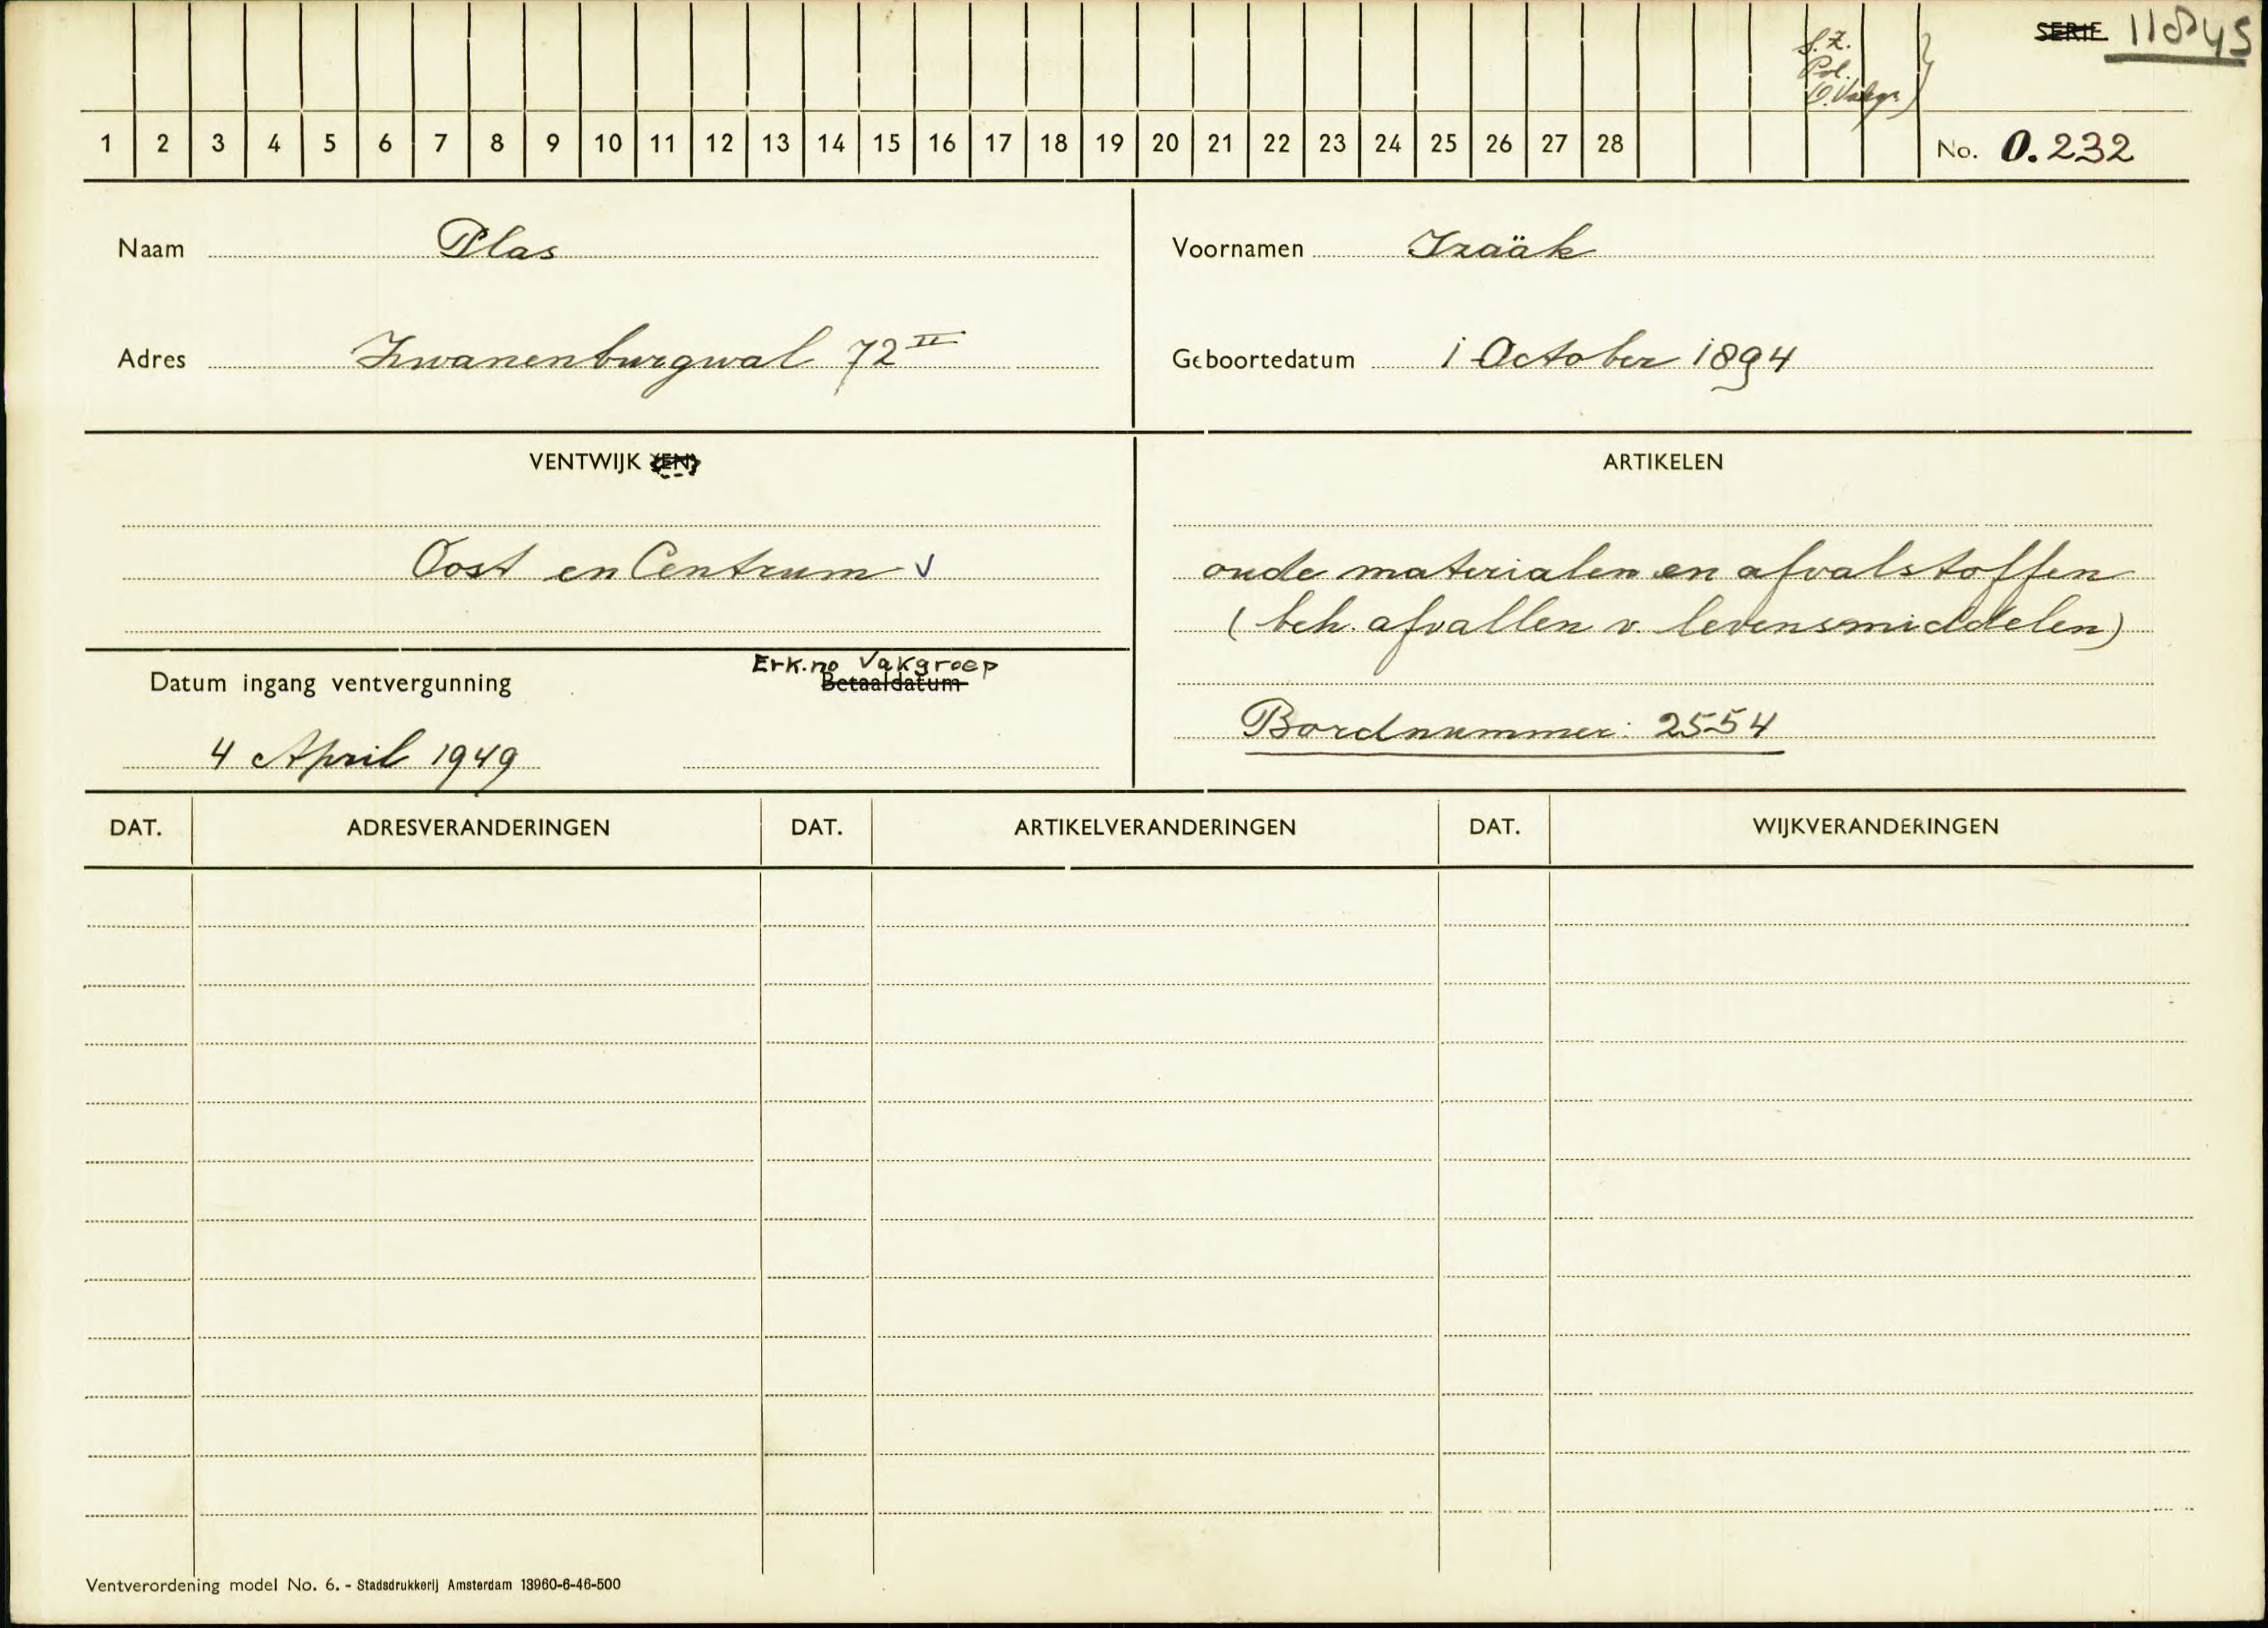 SERIE 11845
S.Z.
Pol.
O.Vakgr
1 2 3 4 5 6 7 8 9 10 11 12 13 14 15 16 17 18 19 20 21 22 23 24 25 26 27 28 No. O.232
Naam Plas Voornamen Izaäk
Adres Zwanenburgwal 72 II Geboortedatum 1 October 1894
VENTWIJK (EN) ARTIKELEN
Oost en Centrum √ oude materialen en afvalstoffen
(beh. afvallen v. levensmiddelen)
Erk.no Vakgroep
Datum ingang ventvergunning Betaaldatum
Bordnummer: 2554
4 April 1949
DAT. ADRESVERANDERINGEN DAT. ARTIKELVERANDERINGEN DAT. WIJKVERANDERINGEN
Ventverordening model No. 6. - Stadsdrukkerij Amsterdam 13960-6-46-500